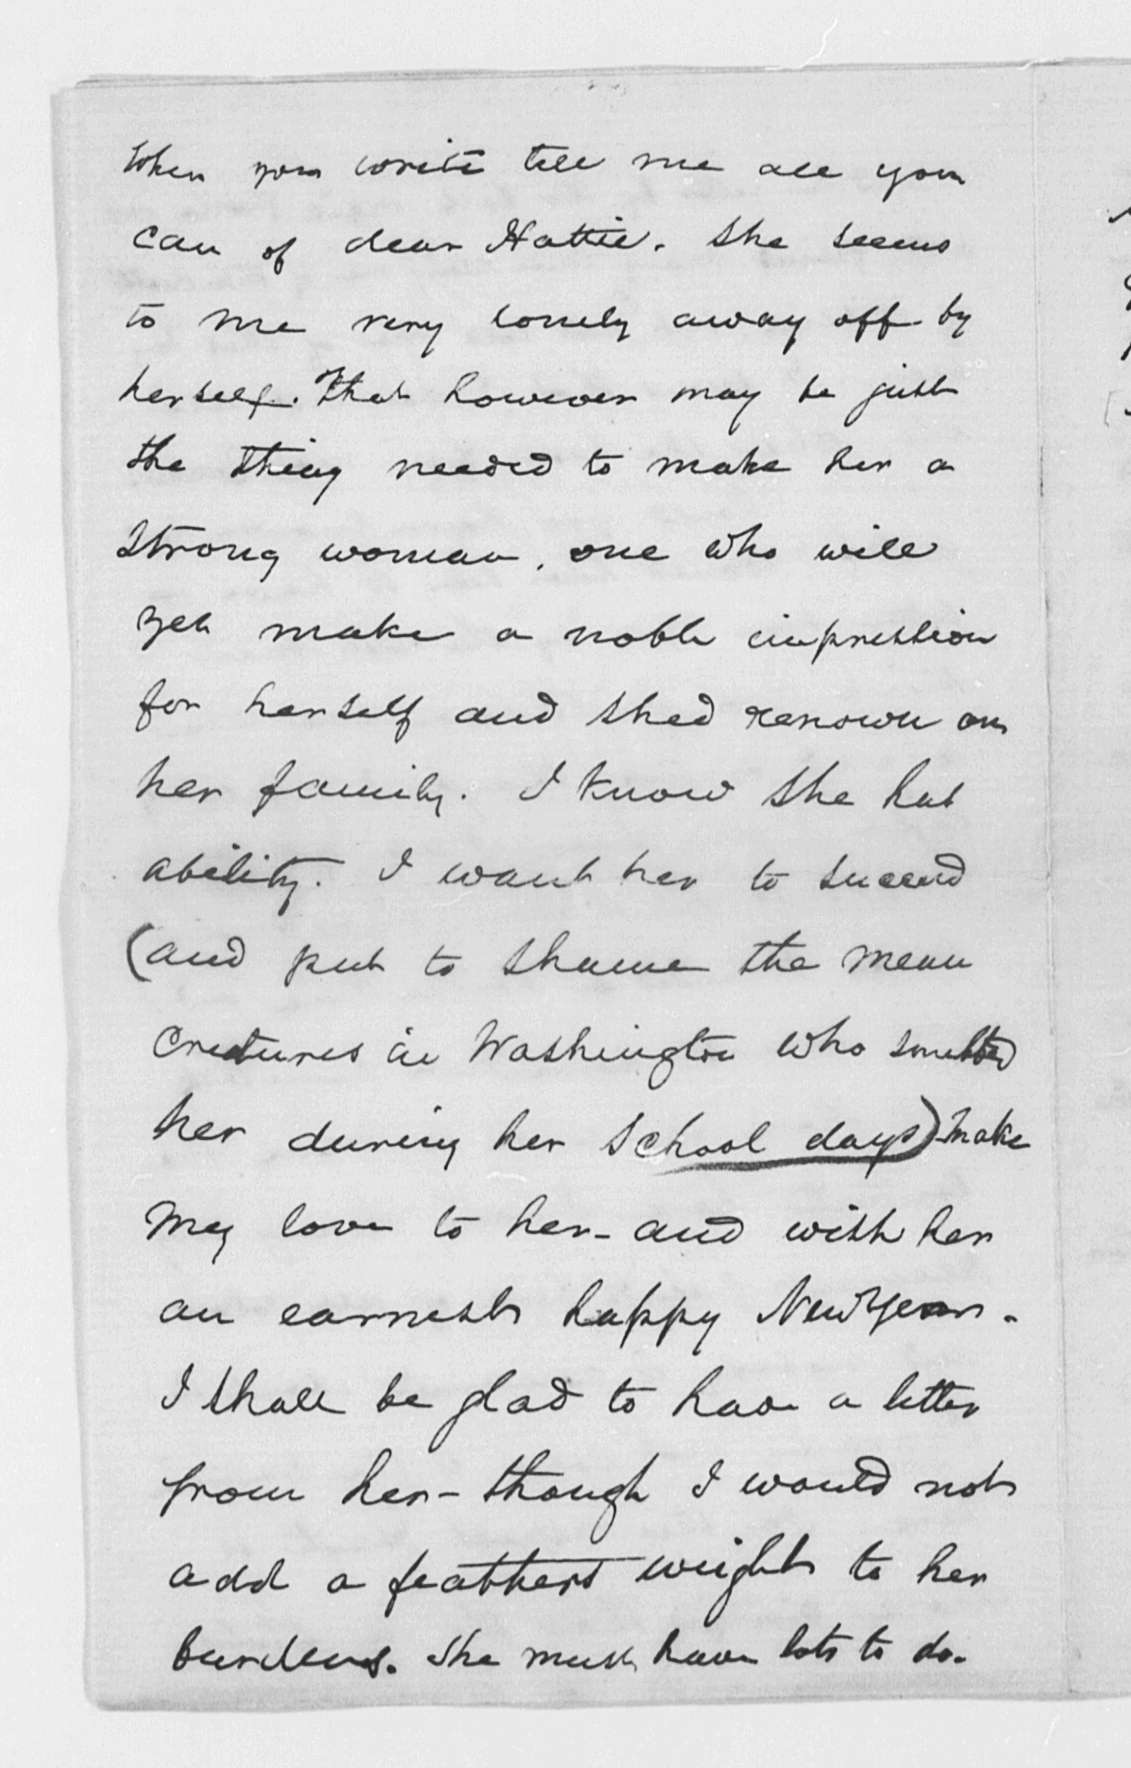 When you write tell me all you
can of dear Hattie. She seems
to me very lonely away off by
herself. That however may be just
the thing needed to make her a
strong woman, one who will
yet make a noble impression
for herself and shed renown on
her family. I know she has
ability. I want her to succeed
(and put to shame the mean
creatures in Washington who snubbed
her during her school days) Make
my love to her - and wish her
an earnest happy New Year.
I shall be glad to have a letter
from her - though I would not
add a feathers weight to her
burdens. She must have lots to do.